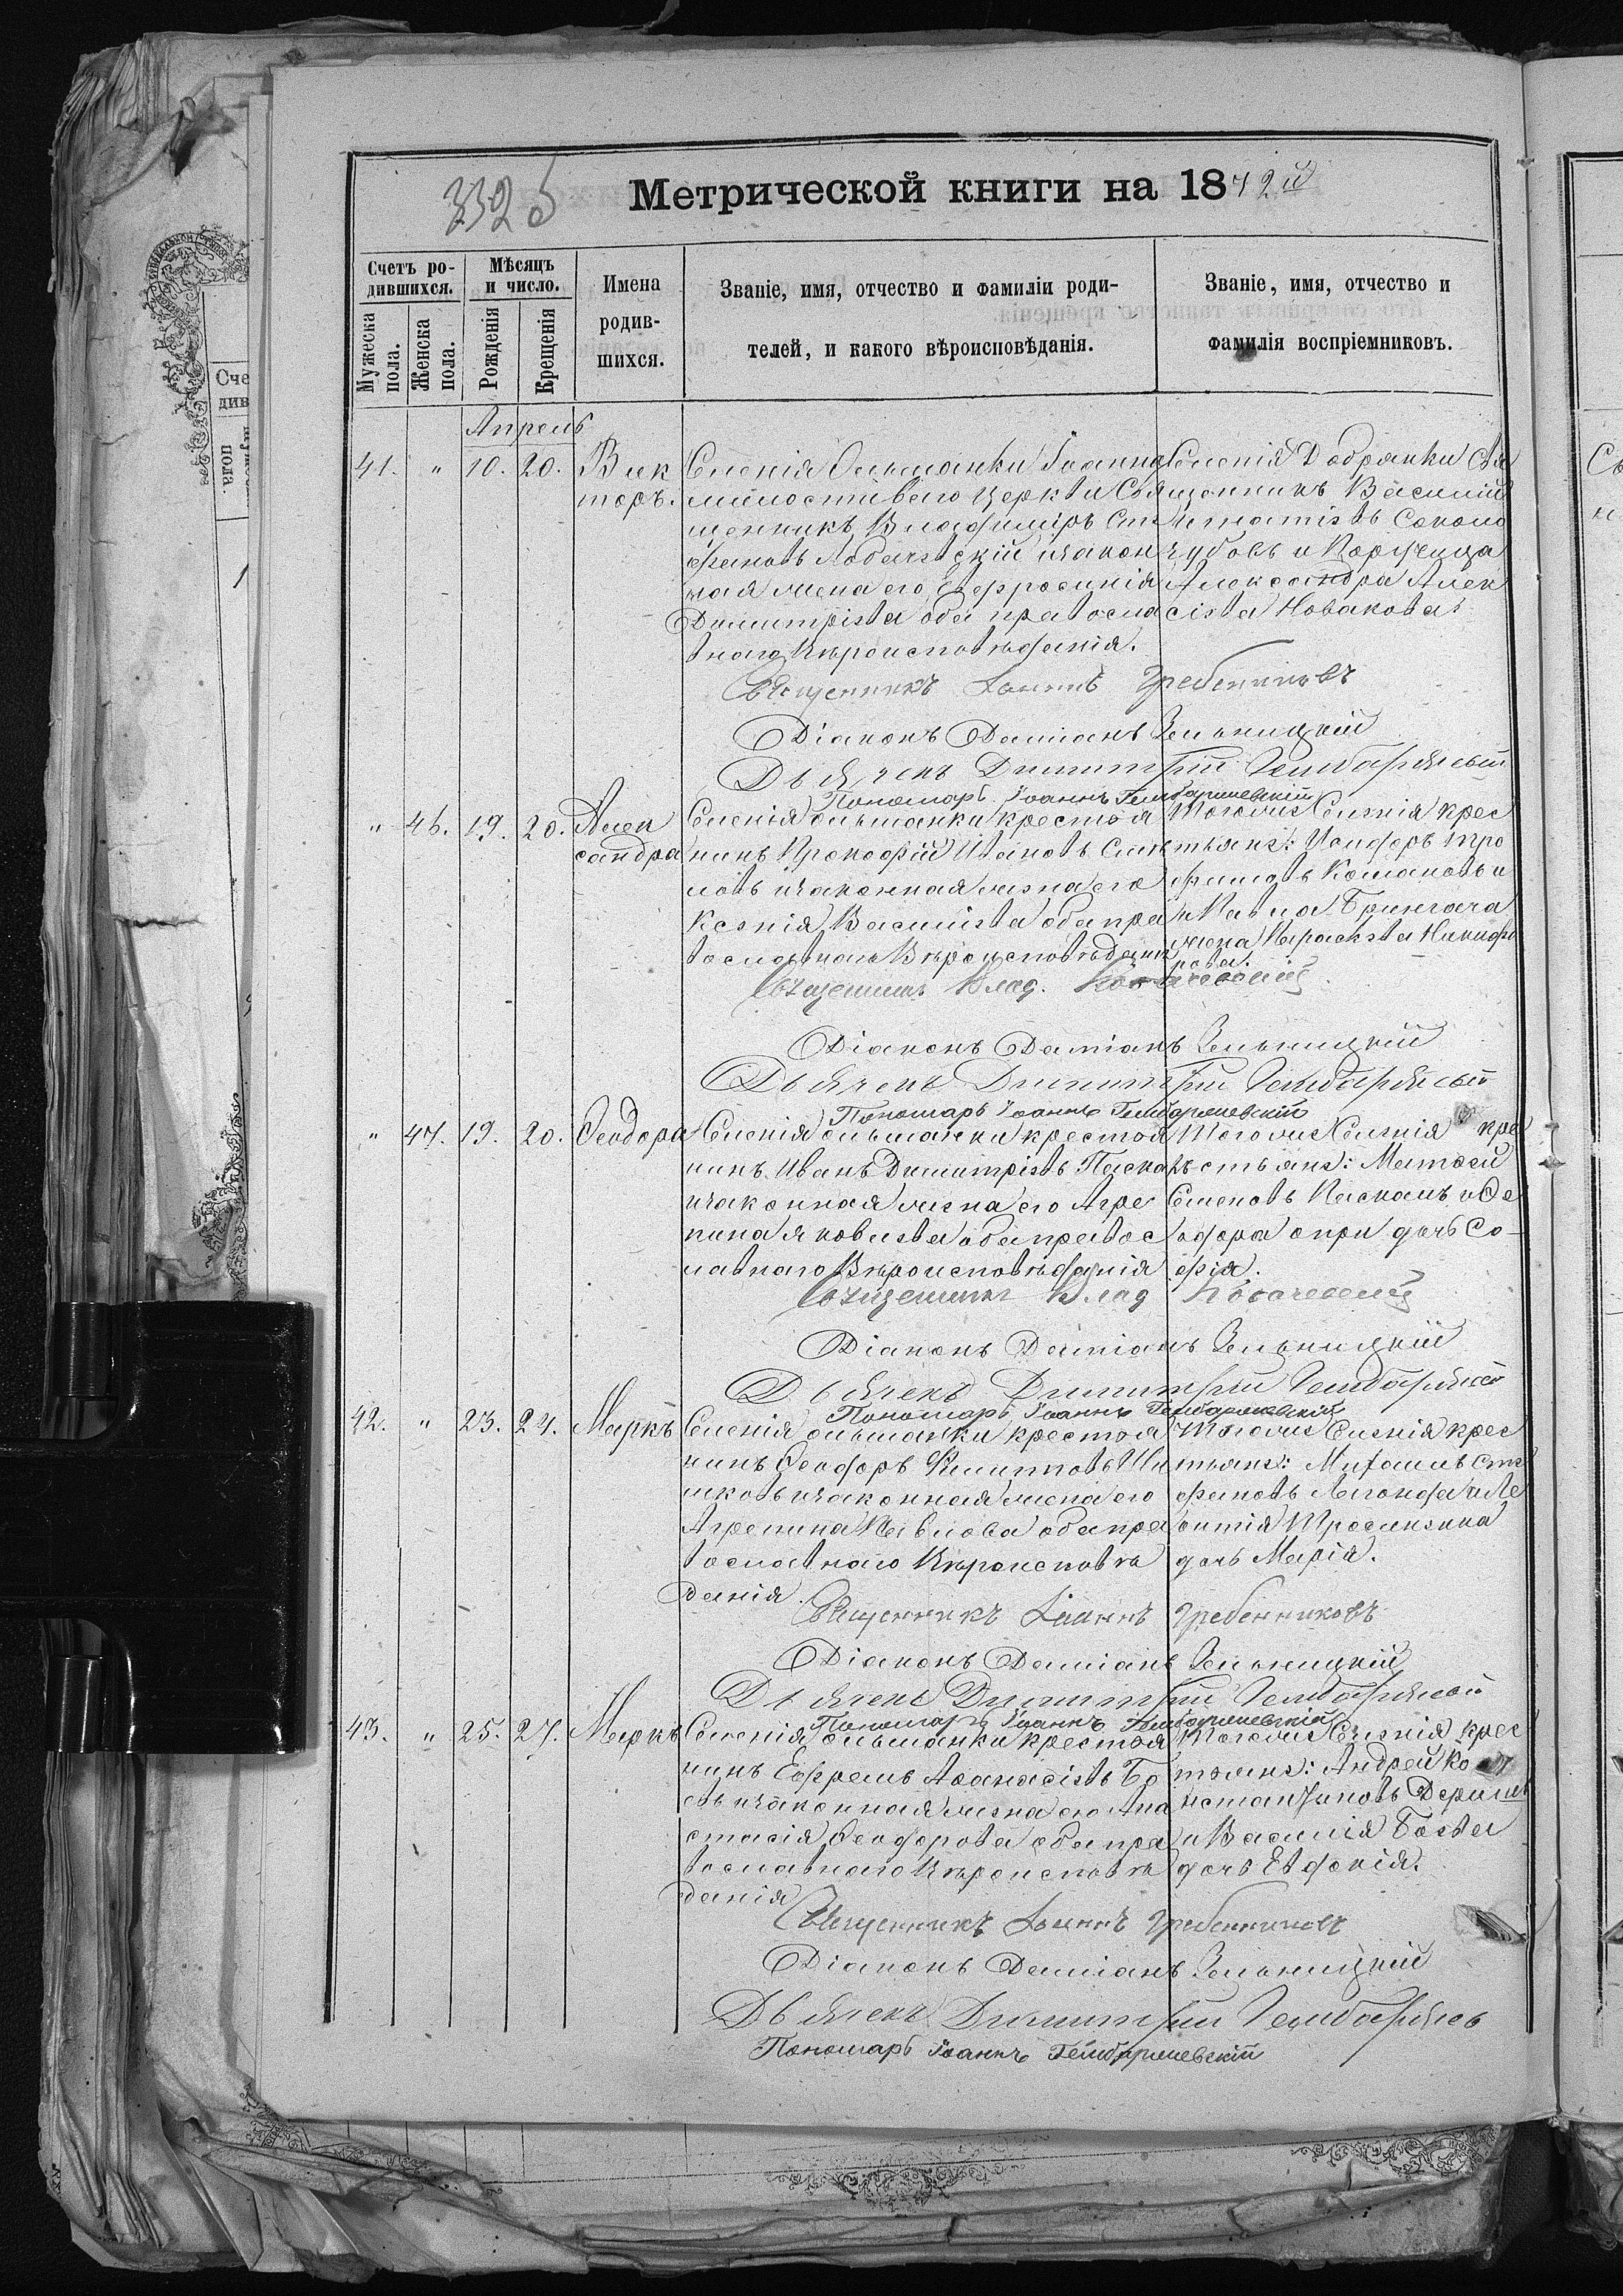 3325
Метрической книги на 1872й
Счетъ ро-
дившихся.
Мужеска
пола.
Женска
пола.
Мѣсяцъ
и число.
Рожденія
Крещенія
Имена
родив-
шихся.
Званіе, имя, отчество и фамиліи роди-
телей, и какого вѣроисповѣданія.
Званіе, имя, отчество и
фамилія воспріемниковъ.
Апрель
41. " 10. 20. Вик
торъ.
Селенія Ольшанки Іоанно
милостиваго Церкви Свя
щенникъ Владиміръ Сте
фановъ Лобачевскій и закон
ная жена его Евфросинія
Димитріева оба правосла
внаго Вѣроисповѣданія.
Селенія Добрянки Свя
щенникъ Василій
Игнатіевъ Соколо
Александра Алек
сіева Новакова
Священникъ Іоаннъ Гребенниковъ
Діаконъ Даміанъ Зельницкій
Дьячекъ Димитрій
Пономарь Іоаннъ
" 46. 19. 20. Алек
сандра
Селенія Ольшанки крестья
нинъ Прокофій Ивановъ
ловъ и законная жена его
Ксенія Васильева оба пра
вославнаго Вѣроисповѣдан
Тогоже Селенія крес
тьяне: Исидоръ Тро
фимовъ Комановъ и
Павла
жена Параскева Никифо
рова.
Священникъ Влад. Лобачевскій
Діаконъ Даміанъ Зельницкій
Дьячекъ Димитрій
Пономарь Іоаннъ
" 47. 19. 20. Ѳеодора
Селенія Ольшанки крестья
нинъ Иванъ Димитріевъ Паскаль
и законная жена его Агре
пина Яковлева оба правос
лавнаго Вѣроисповѣданія
Тогоже Селенія кре
стьяне: Матѳей
Семеновъ Паскаль и Ѳе
одора дочь Со-
фія.
Священникъ Влад Лобачевскій
Діаконъ Даміанъ Зельницкій
Дьячекъ Димитрій
Пономарь Іоаннъ
42. " 23. 24. Маркъ
Селенія Ольшанки крестья
нинъ Ѳеодоръ Филиповъ Ши
шковъ и законная жена его
Агрепина Павлова оба пра
вославнаго Вѣроисповѣ
данія.
Тогоже Селенія крес
тьяне: Михаилъ Сте
фановъ и Ле
онтія
дочь Марія.
Священникъ Іоаннъ Гребенниковъ
Діаконъ Даміанъ Зельницкій
Дьячекъ Димитрій
Пономарь Іоаннъ
43. " 25. 27. Маркъ
Селенія Ольшанки крестья
нинъ Ефремъ Аѳанасіевъ Бо
евъ и законная жена его Ана
стасія Ѳеодорова оба пра
вославнаго Вѣроисповѣ
данія
Тогоже Селенія крес
тьяне: Андрей Ко
нстантиновъ
и Василія Боева
дочь Евдокія.
Священникъ Іоаннъ Гребенниковъ
Діаконъ Даміанъ Зельницкій
Дьячекъ Димитрій
Пономарь Іоаннъ